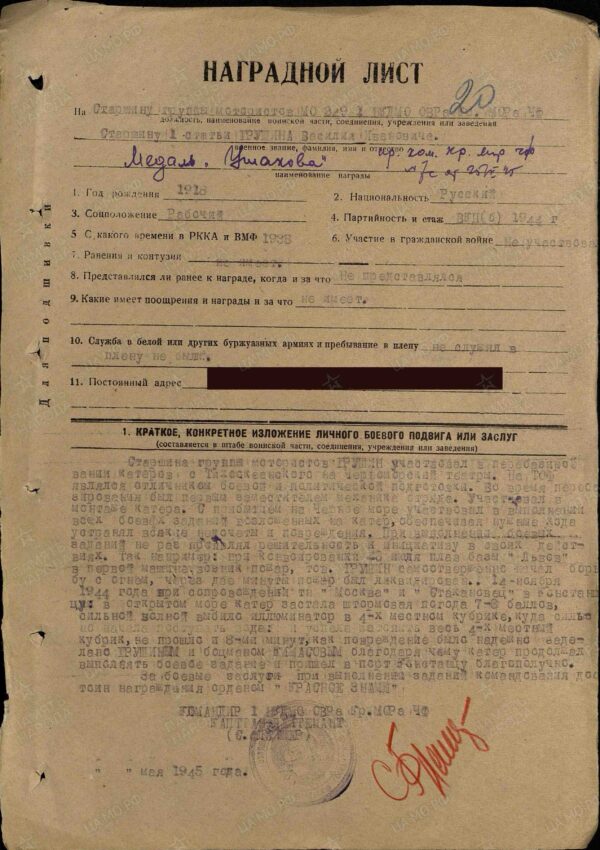 20
НАГРАДНОЙ ЛИСТ
На Старшину группы мотористов МО
должность, наименование воинской части, соединения, учреждения или заведения
Старшину 1 статьи ГРУШИНА Василия Ивановича.
военное звание, фамилия, имя и отчество
Медаль „Ушакова"
наименование награды
1. Год рождения 1918
2. Национальность Русский
3. Соцположение Рабочий
4. Партийность и стаж ВКП(б) 1944 г
5 С какого времени в РККА и ВМФ 1938
6. Участие в гражданской войне Не участвова
7. Ранения и контузии не имеет.
8. Представлялся ли ранее к награде, когда и за что Не представлялся
9. Какие имеет поощрения и награды и за что не имеет.
10. Служба в белой или других буржуазных армиях и пребывание в плену не служил в
плену не был.
11. Постоянный адрес
Для подшивки
1. КРАТКОЕ, КОНКРЕТНОЕ ИЗЛОЖЕНИЕ ЛИЧНОГО БОЕВОГО ПОДВИГА ИЛИ ЗАСЛУГ
(составляется в штабе воинской части, соединения, учреждения или заведения)
Старшина группы мотористов ГРУШИН участвовал в
катеров с Тихоокеанского на Черноморский театры. На ТОФ
являлся отличником боевой и политической подготовки. Во время
был первым заместителем механика отряда. Участвовал в
монтаже катера. С прибытием на Черное море участвовал в выполнении
всех боевых заданий возложенных на катер, обеспечивая нужные хода
устранял всякие и повреждения. При выполнении боевых
заданий не раз проявлял решительность и инициативу в своих дейст-
виях. Так например: при июля плав базы "Львов"
в первой машине возник пожар, тов. ГРУШИН самоотверженно начал борь
бу с огнем, через две минуты пожар был ликвидирован. 14-ноября
1944 года при сопровождении тн "Москва" и "Стахановец" в Констан
цу: в открытом море катер застала штормовая погода 7-8 баллов,
сильной волной выбило иллюминатор в 4-х местном кубрике, куда силь
весь 4-х местный
кубрик, не прошло и 8-ми минут, как повреждение было надежно заде-
лано ГРУШИНЫМ и боцманом благодаря чему катер продолжал
выполнять боевое задание и пришел в порт Констанцу благополучно.
За боевые заслуги при выполнении заданий командования дос
тоин награждения орденом "КРАСНОЕ ЗНАМЯ".
КОМАНДИР 1 ОВРа Кр.МОРа ЧФ
"   " мая 1945 года.
ЦАМО.РФ